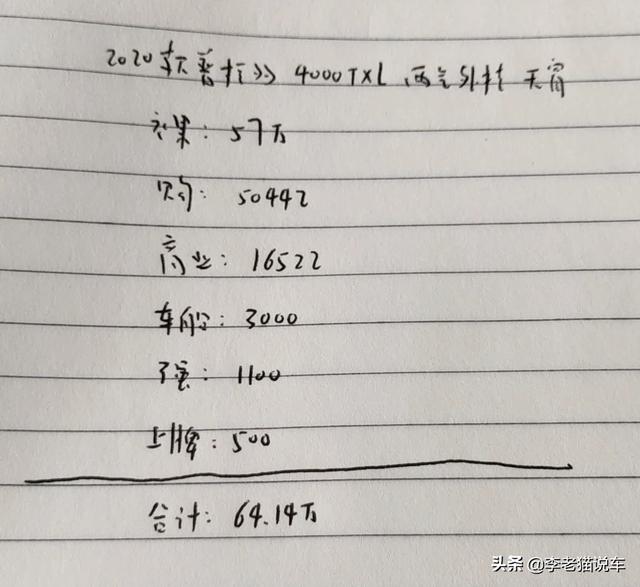 2020款普拉多 4000TXL 两气外挂 天窗
裸车: 57万
购: 50442
商业: 16522
车船: 3000
强: 1100
上牌: 500
合计: 64.14万
头条 @李老猫说车